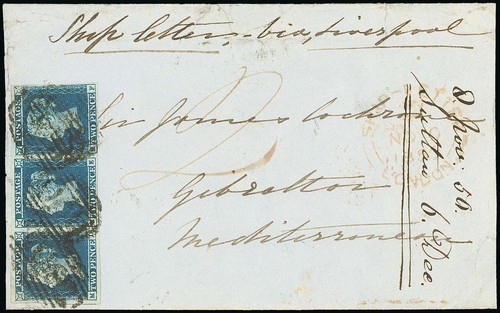 Ship letter, via, Liverpool
Sir James Cochrane
Gibraltar
Mediterranean
2
8 Nov. 50.
Sultan 6. Dec.
POSTAGE
TWO PENCE
POSTAGE
TWO PENCE
POSTAGE
TWO PENCE